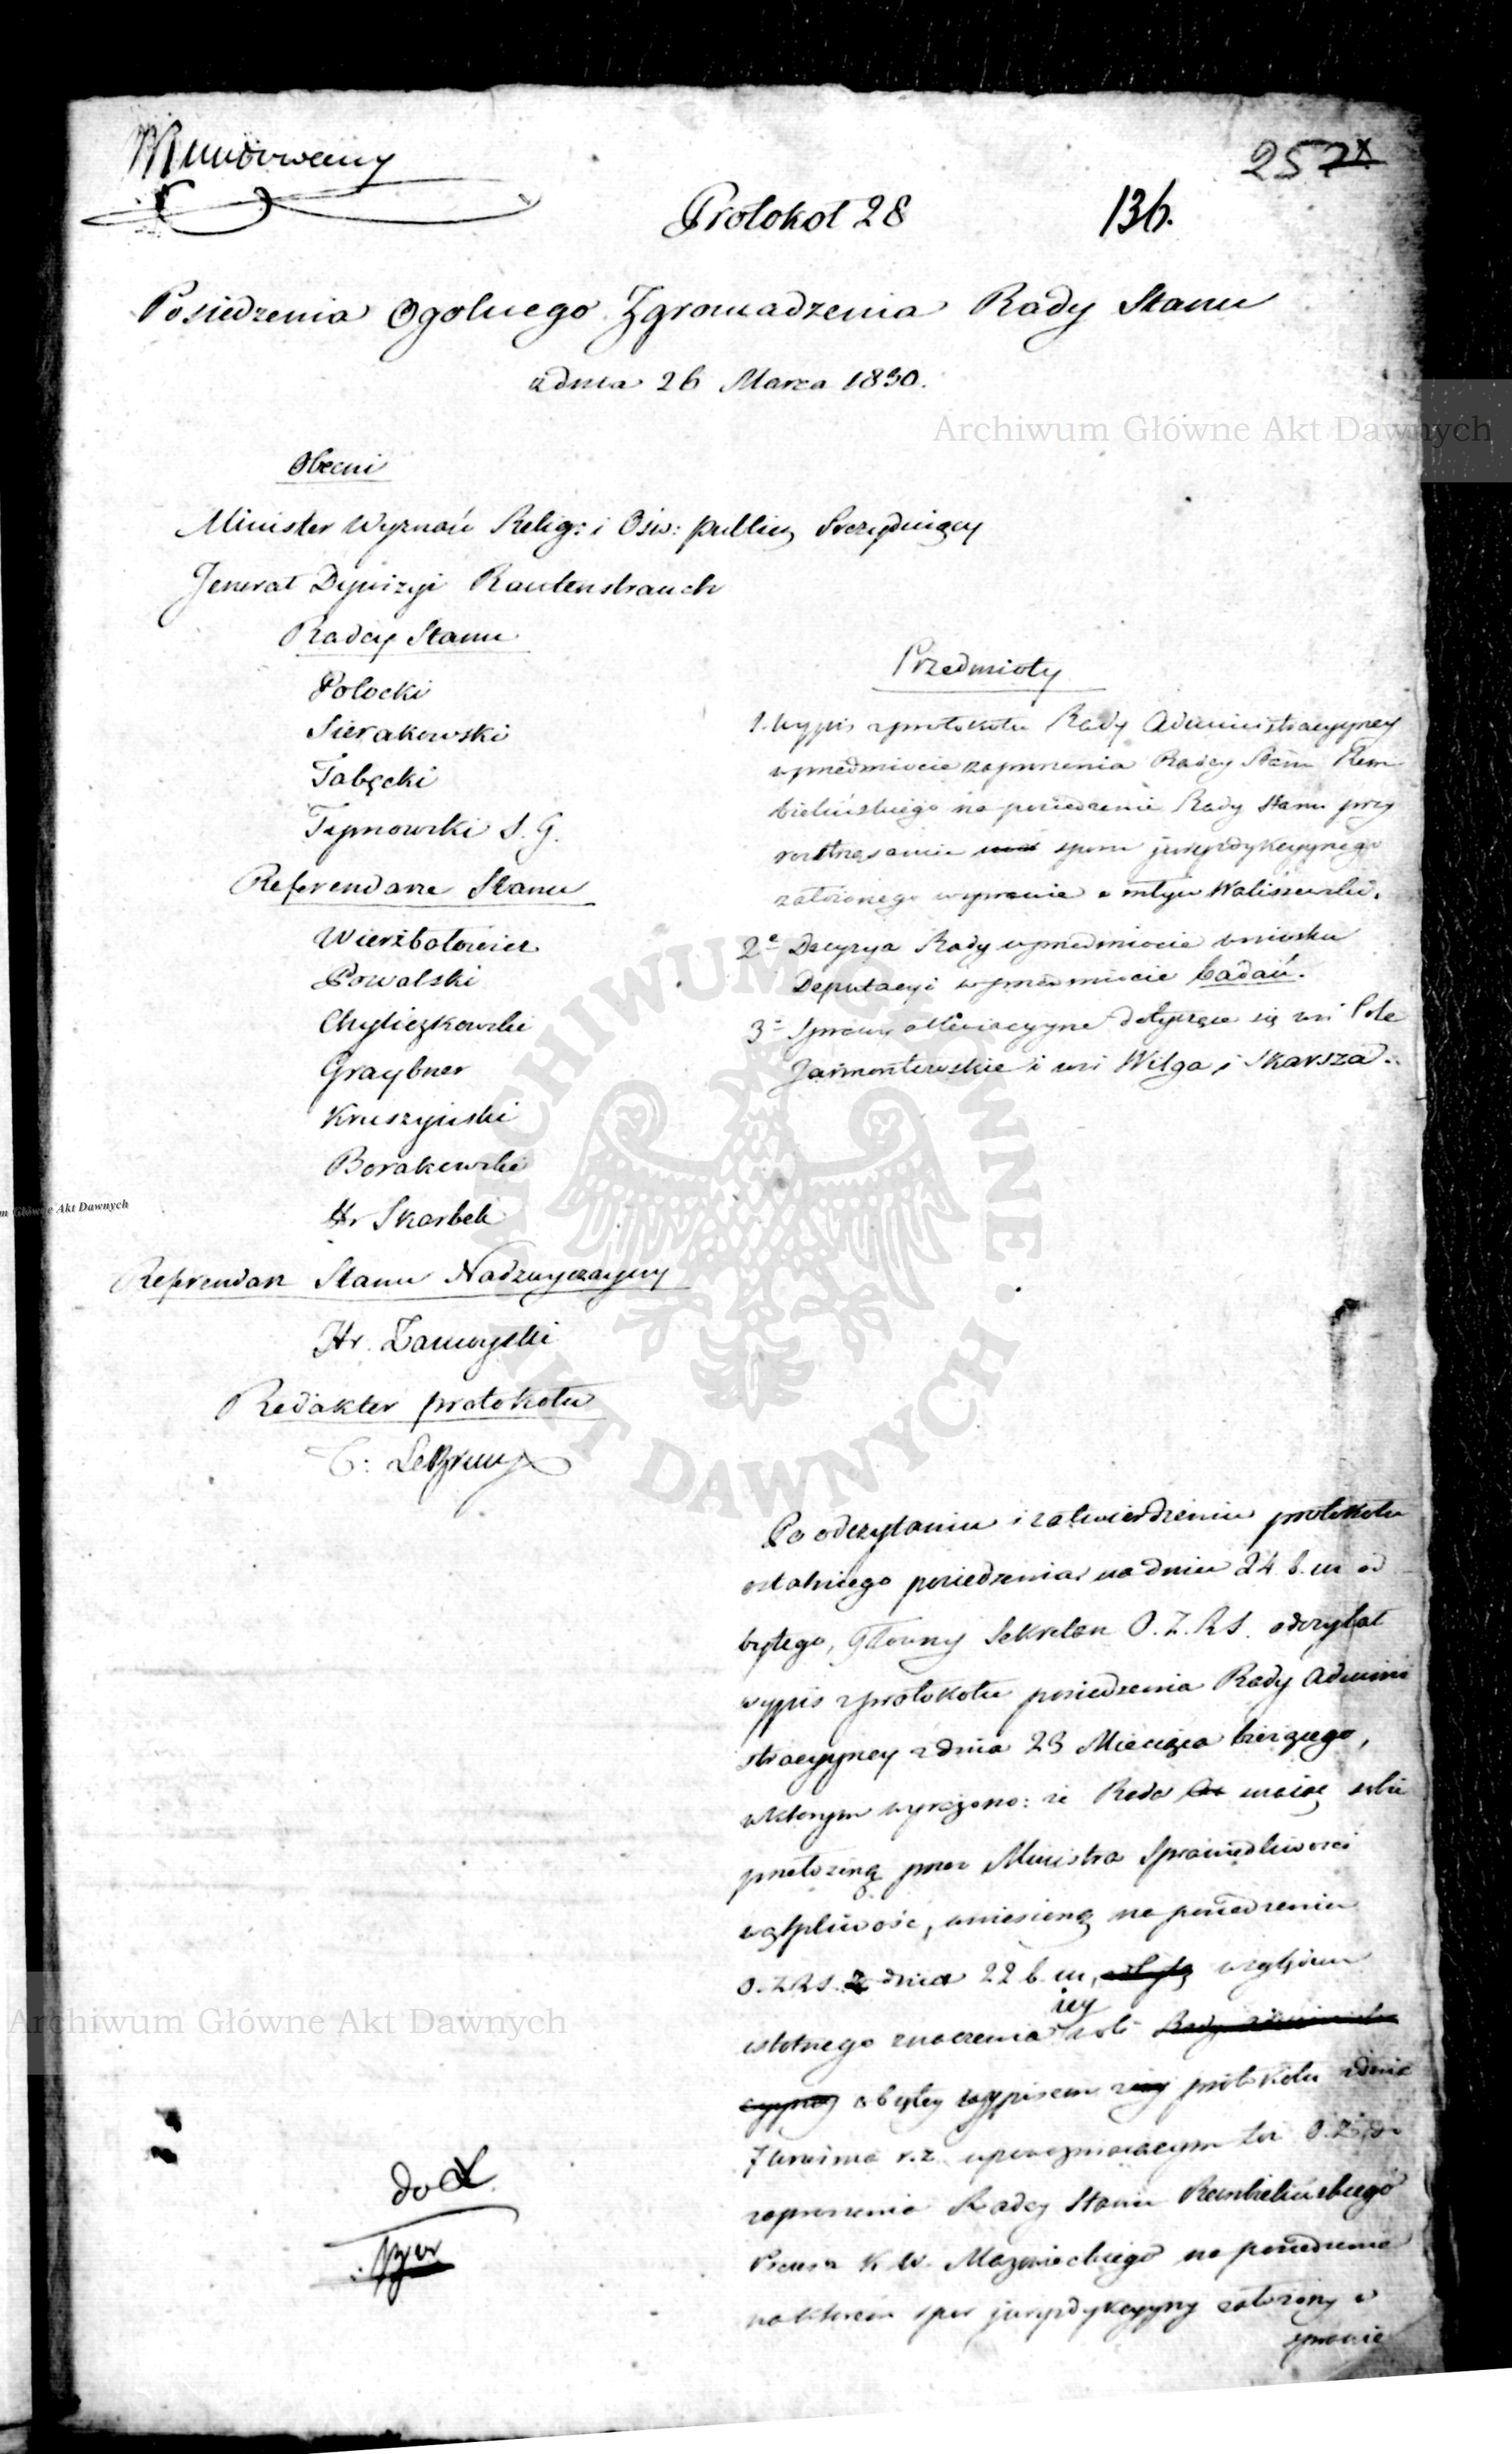 257
Protokoł 28
136.
Posiedzenia Ogolnego Zgromadzenia Rady Stanu
z dnia 26 Marca 1830.
Archiwum Główne Akt Dawnych
Obecni
Minister Wyznań Relig: i Ośw: publicz Prezyduiący
Jenerał Dywizyi Rautenstrauch
Radcy Stanu
Potocki
Sierakowski
Tabęcki
Tymowski S. G.
Referendarze Stanu
Wierzbołowicz
Powalski
Chyliczkowski
Graybner
Kruszyński
Borakowski
Hr Skarbek
Referendarz Stanu Nadzwyczayny
Hr. Zamoyski
Redaktor protokołu
Przedmioty
1. Wypis z protokołu Rady Administracyyney
w przedmiocie zaproszenia Radcy Stanu Rem
bielińskiego na posiedzenie Rady Stanu przy
roztrząsaniu sporu juryzdykcyynego
założonego w sprawie o młyn Waliszewski.
2e Decyzya Rady w przedmiocie wniosku
Deputacyi w przedmiocie badań.
3e Sprawy allewiacyyne dotyczące się wsi Pole
Jarmontowskie i wsi Wilga i Skarsza.
m Główne Akt Dawnych
ARCHIWUM GŁÓWNE AKT DAWNYCH
Po odczytaniu i zatwierdzeniu protokołu
ostatniego posiedzenia na dniu 24 b. m od
bytego, Głowny Sekretarz O. Z. R S. odczytał
wypis z protokołu posiedzenia Rady Admini
stracyyney z dnia 23 Miesiąca bieżącego,
w ktorym wyrażono: że Rada maiąc sobie
przełożoną przez Ministra Sprawiedliwości
wątpliwość, wniesioną na posiedzeniu
O. Z R S. z dnia 22 b. m, względem
istotnego znaczenia iey woli
obiętey wypisem protokołu z dnia
7 kwietnia r. z. upoważniaiącym toż O. Z. do
zaproszenia Radcy Stanu Rembielińskiego
Prezesa K. W. Mazowieckiego na posiedzenie
na ktorém spor juryzdykcyyny założony w
sprawie
Archiwum Główne Akt Dawnych